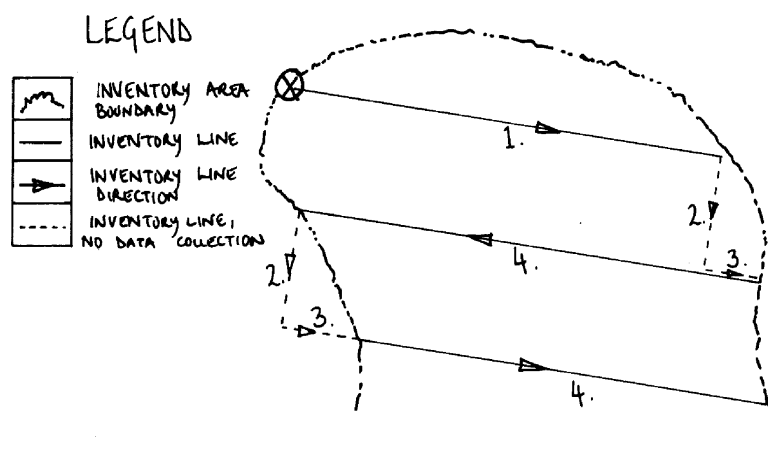 LEGEND
INVENTORY AREA
BOUNDARY
INVENTORY LINE
INVENTORY LINE
DIRECTION
INVENTORY LINE,
NO DATA COLLECTION
1.
2.
3.
4.
2.
3.
4.